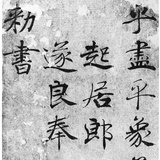 乎盡乎象
起居郎
遂良奉
勅書